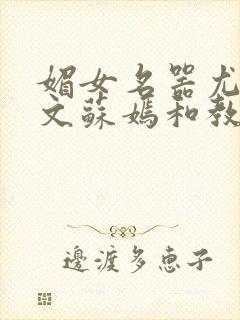 媚女名器尤
文蘇媽和教
邊渡多恵子